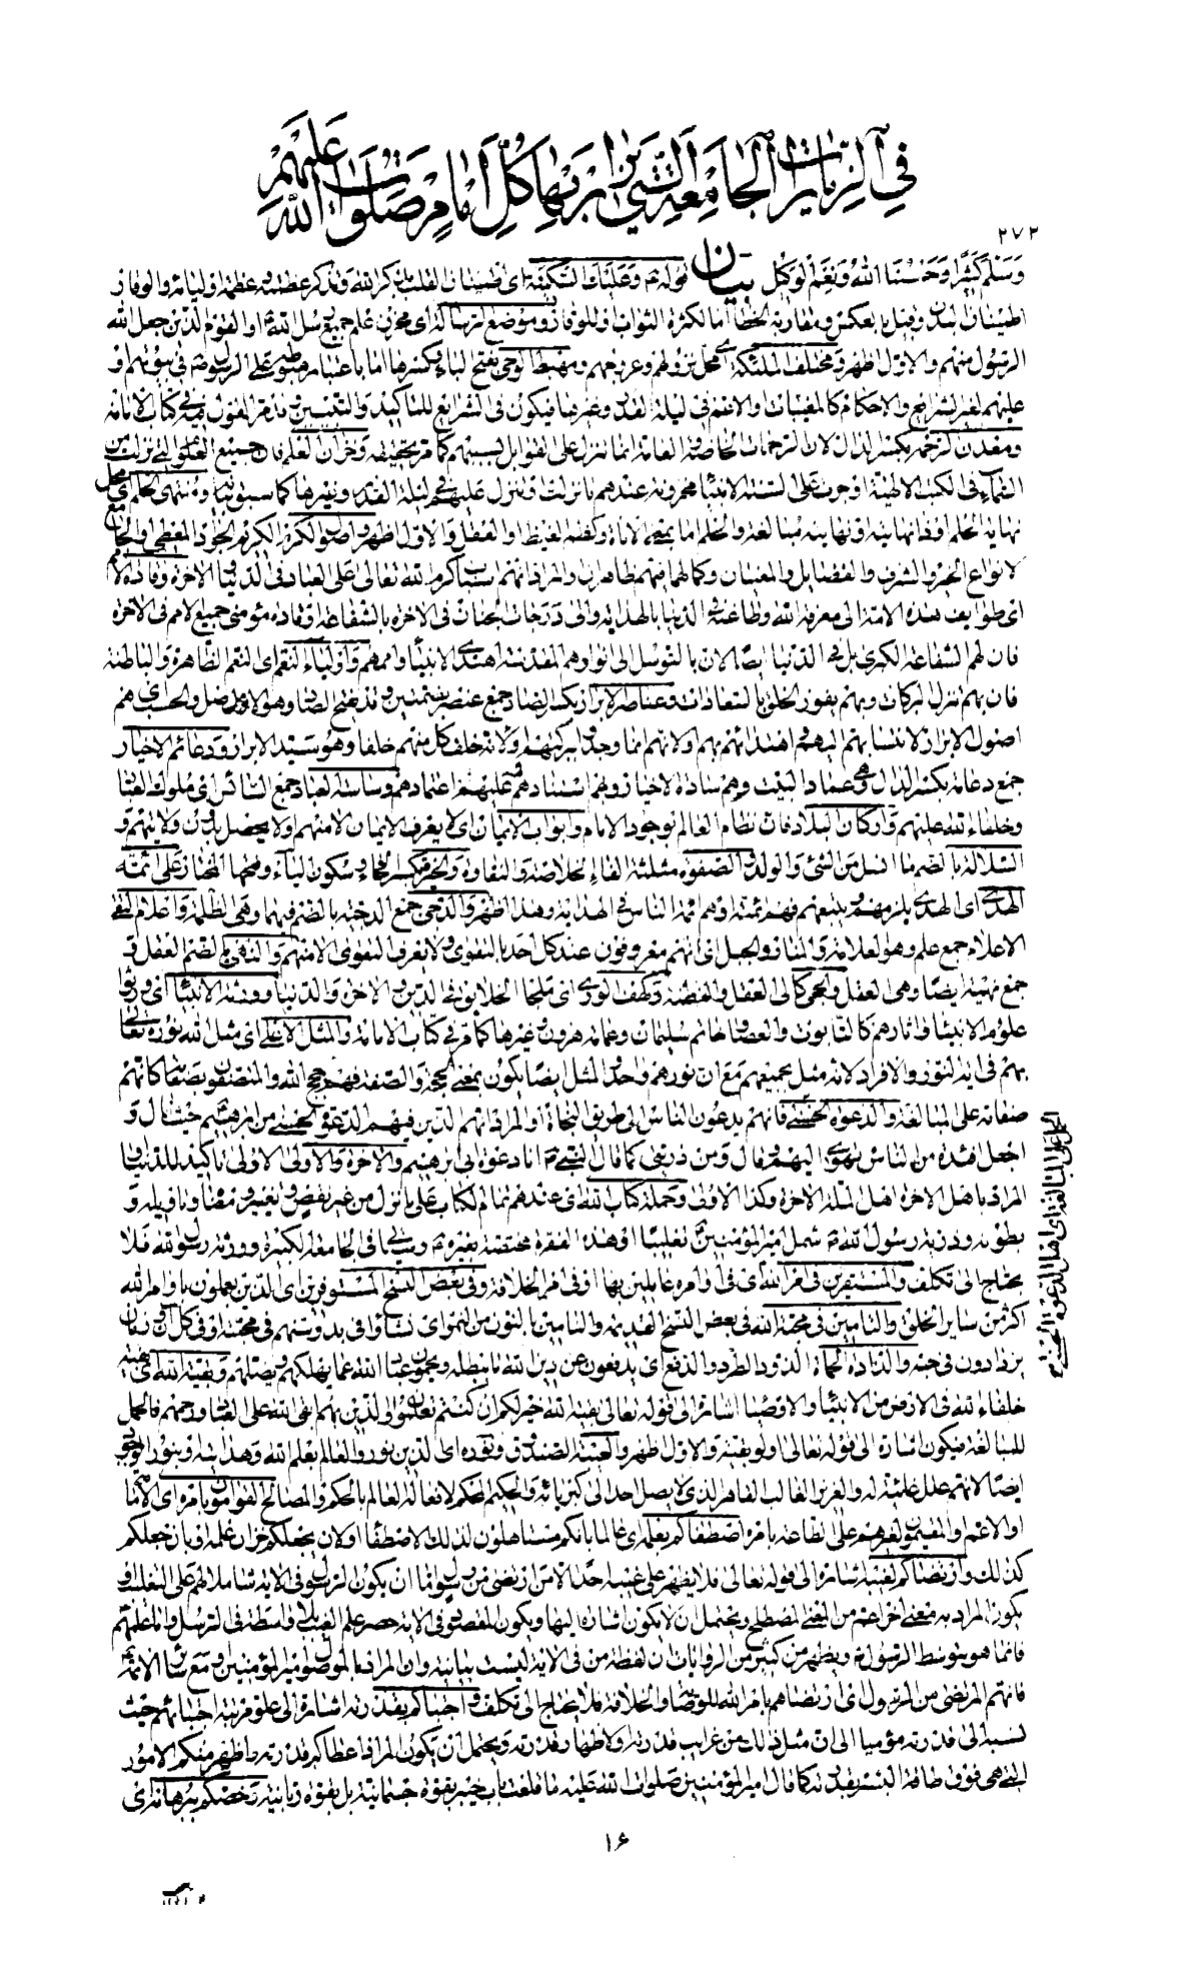 في الزيارات الجامعة التي يزار بها كل امام صلوات الله عليهم
٢٧٢
وسلم كثيرا وحسبنا الله ونعم الوكيل بيان قوله وعليك السكينة اي اطمينان القلب بذكر الله وتذكر عظمته وعظمة اوليائه والوقار
اطمينان البدن وقيل بالعكس ومقاربة الخطا اما لكثرة الثواب او للوقار وموضع الرسالة اي مخزن علم جميع رسل الله او القوم الذين جعل الله
الرسول منهم والاول اظهر ومختلف الملئكة اي محل نزولهم وعروجهم ومهبط الوحي بفتح الباء وكسرها اما باعتبار هبوطه على الرسول في بيوتهم او
عليهم لغير الشرايع والاحكام كالمغيبات والاعم في ليلة القدر وغيرها فيكون في الشرائع للتاكيد والتبيين وقد مر القول فيه في كتاب الامامة
ومعدن الرحمة بكسر الدال لان الرحمات الخاصة والعامة انما تنزل على القوابل بسببهم كما مر تحقيقه وخزان العلم فان جميع العلوم التي نزلت من
السماء في الكتب الالهية او جرت على السنة الانبياء مخزونة عندهم مع ما نزلت وتنزل عليهم في ليلة القدر وغيرها كما سبق بيانه ومنتهى الحلم اي محل
نهاية الحلم او ذا نهايته ونهايته مبالغة والحلم اما بمعنى الاناة وكظم الغيظ او العقل والاول اظهر واصول الكرم الكريم الجواد المعطي والجامع
لانواع الخير والشرف والفضايل والمعنيان وكمالهما فيهم ظاهران والمراد انهم اسباب كرم الله تعالى على العباد في الدنيا والاخرة وقادة الامم
اي طوايف هذه الامة الى معرفة الله وطاعته في الدنيا بالهداية والى درجات الجنان في الاخرة بالشفاعة او قادة مؤمني جميع الامم في الاخرة
فان لهم الشفاعة الكبرى بل في الدنيا ايضا لان بالتوسل الى انوارهم المقدسة اهتدى الانبياء واممهم واولياء النعم اي النعم الظاهرة والباطنة
فان بهم تنزل البركات وبهم يفوز الخلق بالسعادات وعناصر الابرار بكسر الصاد جمع عنصر بضمتين وقد تفتح الصاد وهو الاصل والحسب اي هم
اصول الابرار لانتسابهم اليهم في اهتدائهم بهم او لانهم انما وجدوا ببركتهم او لانه خلف كل منهم خلفا وهو سيد الابرار ودعائم الاخيار
جمع دعامة بكسر الدال وهي عماد البيت وهم سادة الاخيار وبهم استنادهم وعليهم اعتمادهم وساسة العباد جمع السائس اي ملوك العباد
وخلفاء الله عليهم واركان البلاد فان نظام العالم بوجود الامام وابواب الايمان اي لا يعرف الايمان الا منهم ولا يحصل بدون ولايتهم و
السلالة بالضم ما انسل من الشئ والولد والصفوة مثلثة الفاء الخلاصة والنقاوة والخيرة بكسر الخاء وسكون الياء وفتحها المختار على ائمة
الهدى اي الهدى يلزمهم ويتبعهم فهم ائمته او هم ائمة الناس في الهداية وهذا اظهر والدجى جمع الدجية بالضم فيهما وهي الظلمة واعلام التقى
الاعلام جمع علم وهو العلامة والمنار والجبل اي انهم معروفون عند كل احد بالتقوى ولا يعرف التقوى الا منهم والنهى بالضم العقل و
جمع نهية ايضا وهي العقل والحجى كالى العقل والفطنة وكهف الورى اي ملجأ الخلايق في الدين والاخرة والدنيا وورثة الانبياء اي ورثوا
علوم الانبياء واثارهم كالتابوت والعصا وخاتم سليمان وعمامة هرون وغيرها كما مر في كتاب الامامة والمثل الاعلى اي مثل الله نوره تعالى
بهم في اية النور والافراد لانه مثل بجميعهم مع ان نورهم واحد والمثل ايضا يكون بمعنى الحجة والصفة فهم حجج الله والمتصفون بصفاته كانهم
صفاته على المبالغة والدعوة الحسنى فانهم يدعون الناس الى طريق النجاة او المراد انهم الذين فيهم الدعوة الحسنى من ابرهيم حيث قال و
اجعل افئدة من الناس تهوي اليهم وقال ومن ذريتي كما قال النبي انا دعوة ابي ابرهيم والاخرة والاولى الاولى تاكيد للدنيا او
المراد باهل الاخرة اهل الملة الاخرة وكذا الاولى وحملة كتاب الله اي عندهم تمام الكتاب على ما نزل من غير نقص وتغيير ومعناه وتاويله و
بطونه وذرية رسول الله شمل امير المؤمنين تغليبا او هذه الفقرة مختصة بغيره وسيأتي في الجامعة الكبيرة وورثة رسول الله فلا
يحتاج الى تكلف والمستقرين في امر الله اي في اوامره عاملين بها او في امر الخلافة وفي بعض النسخ المستوفرين اي الذين يعملون باوامر الله
اكثر من ساير الخلق والتامين في محبة الله في بعض النسخ القديمة والنامين بالنون من النمو اي نشأوا في بدو سنهم في محبته او في كل ان وزمان
يزدادون في حبه والذادة الحماة الذود الطرد والدفع اي يدفعون عن دين الله ما يبطله ويحمون عباد الله عما يهلكهم ويضلهم وبقية الله اي بقية
خلفاء الله في الارض من الانبياء والاوصياء اشارة الى قوله تعالى بقية الله خير لكم ان كنتم تعلمون او الذين بهم ابقى الله على العباد ورحمهم فالحمل
للمبالغة فيكون اشارة الى قوله تعالى اولو بقية والاول اظهر والعيبة الصندوق ونوره اي الذين نوروا العالم بعلم الله وهدايته وبنور الوجود
ايضا لانهم علل غائية له والعزيز الغالب القاهر الذي لا يصل احد الى كبريائه والحكيم المحكم لافعاله العالم بالحكم والمصالح القوامون بامره اي الامامة
او الاعم والمقيمون لغيرهم على الطاعة بامره اصطفاكم بعلمه اي عالما بانكم مستاهلون لذلك الاصطفاء او لان يجعلكم خزان علمه او بان جعلكم
كذلك وارتضاكم لغيبه اشارة الى قوله تعالى فلا يظهر على غيبه احدا الا من ارتضى من رسول اما ان يكون الرسول في الاية شاملا لهم على التغليب او
يكون المراد به معنى اخر اعم من المعنى المصطلح ويحتمل ان لا يكون اشارة اليها ويكون المقصود في الاية حصر علم الغيب بلا واسطة في الرسل واما علمهم
فانما هو بتوسط الرسول ويظهر من كثير من الروايات ان لفظة من في الاية ليست بيانية وان المراد بالموصول امير المؤمنين مع سائر الائمة
فانهم المرتضى من الرسول اي ارتضاهم بامر الله للوصاية والخلافة فلا يحتاج الى تكلف واجتباكم بقدرته اشارة الى علو مرتبة اجتبائهم حيث
نسبه الى قدرته مؤميا الى ان مثل ذلك من غرايب قدرته او لاظهار قدرته ويحتمل ان يكون المراد اعطاكم قدرته واظهر منكم الامور
التي هي فوق طاقة البشر بقدرته كما قال امير المؤمنين صلوات الله عليه ما قلعت باب خيبر بقوة جسمانية بل بقوة ربانية وخصكم ببرهانه اي
الحمل على المبالغة اي اهل الدعوة الحسنى
١٦